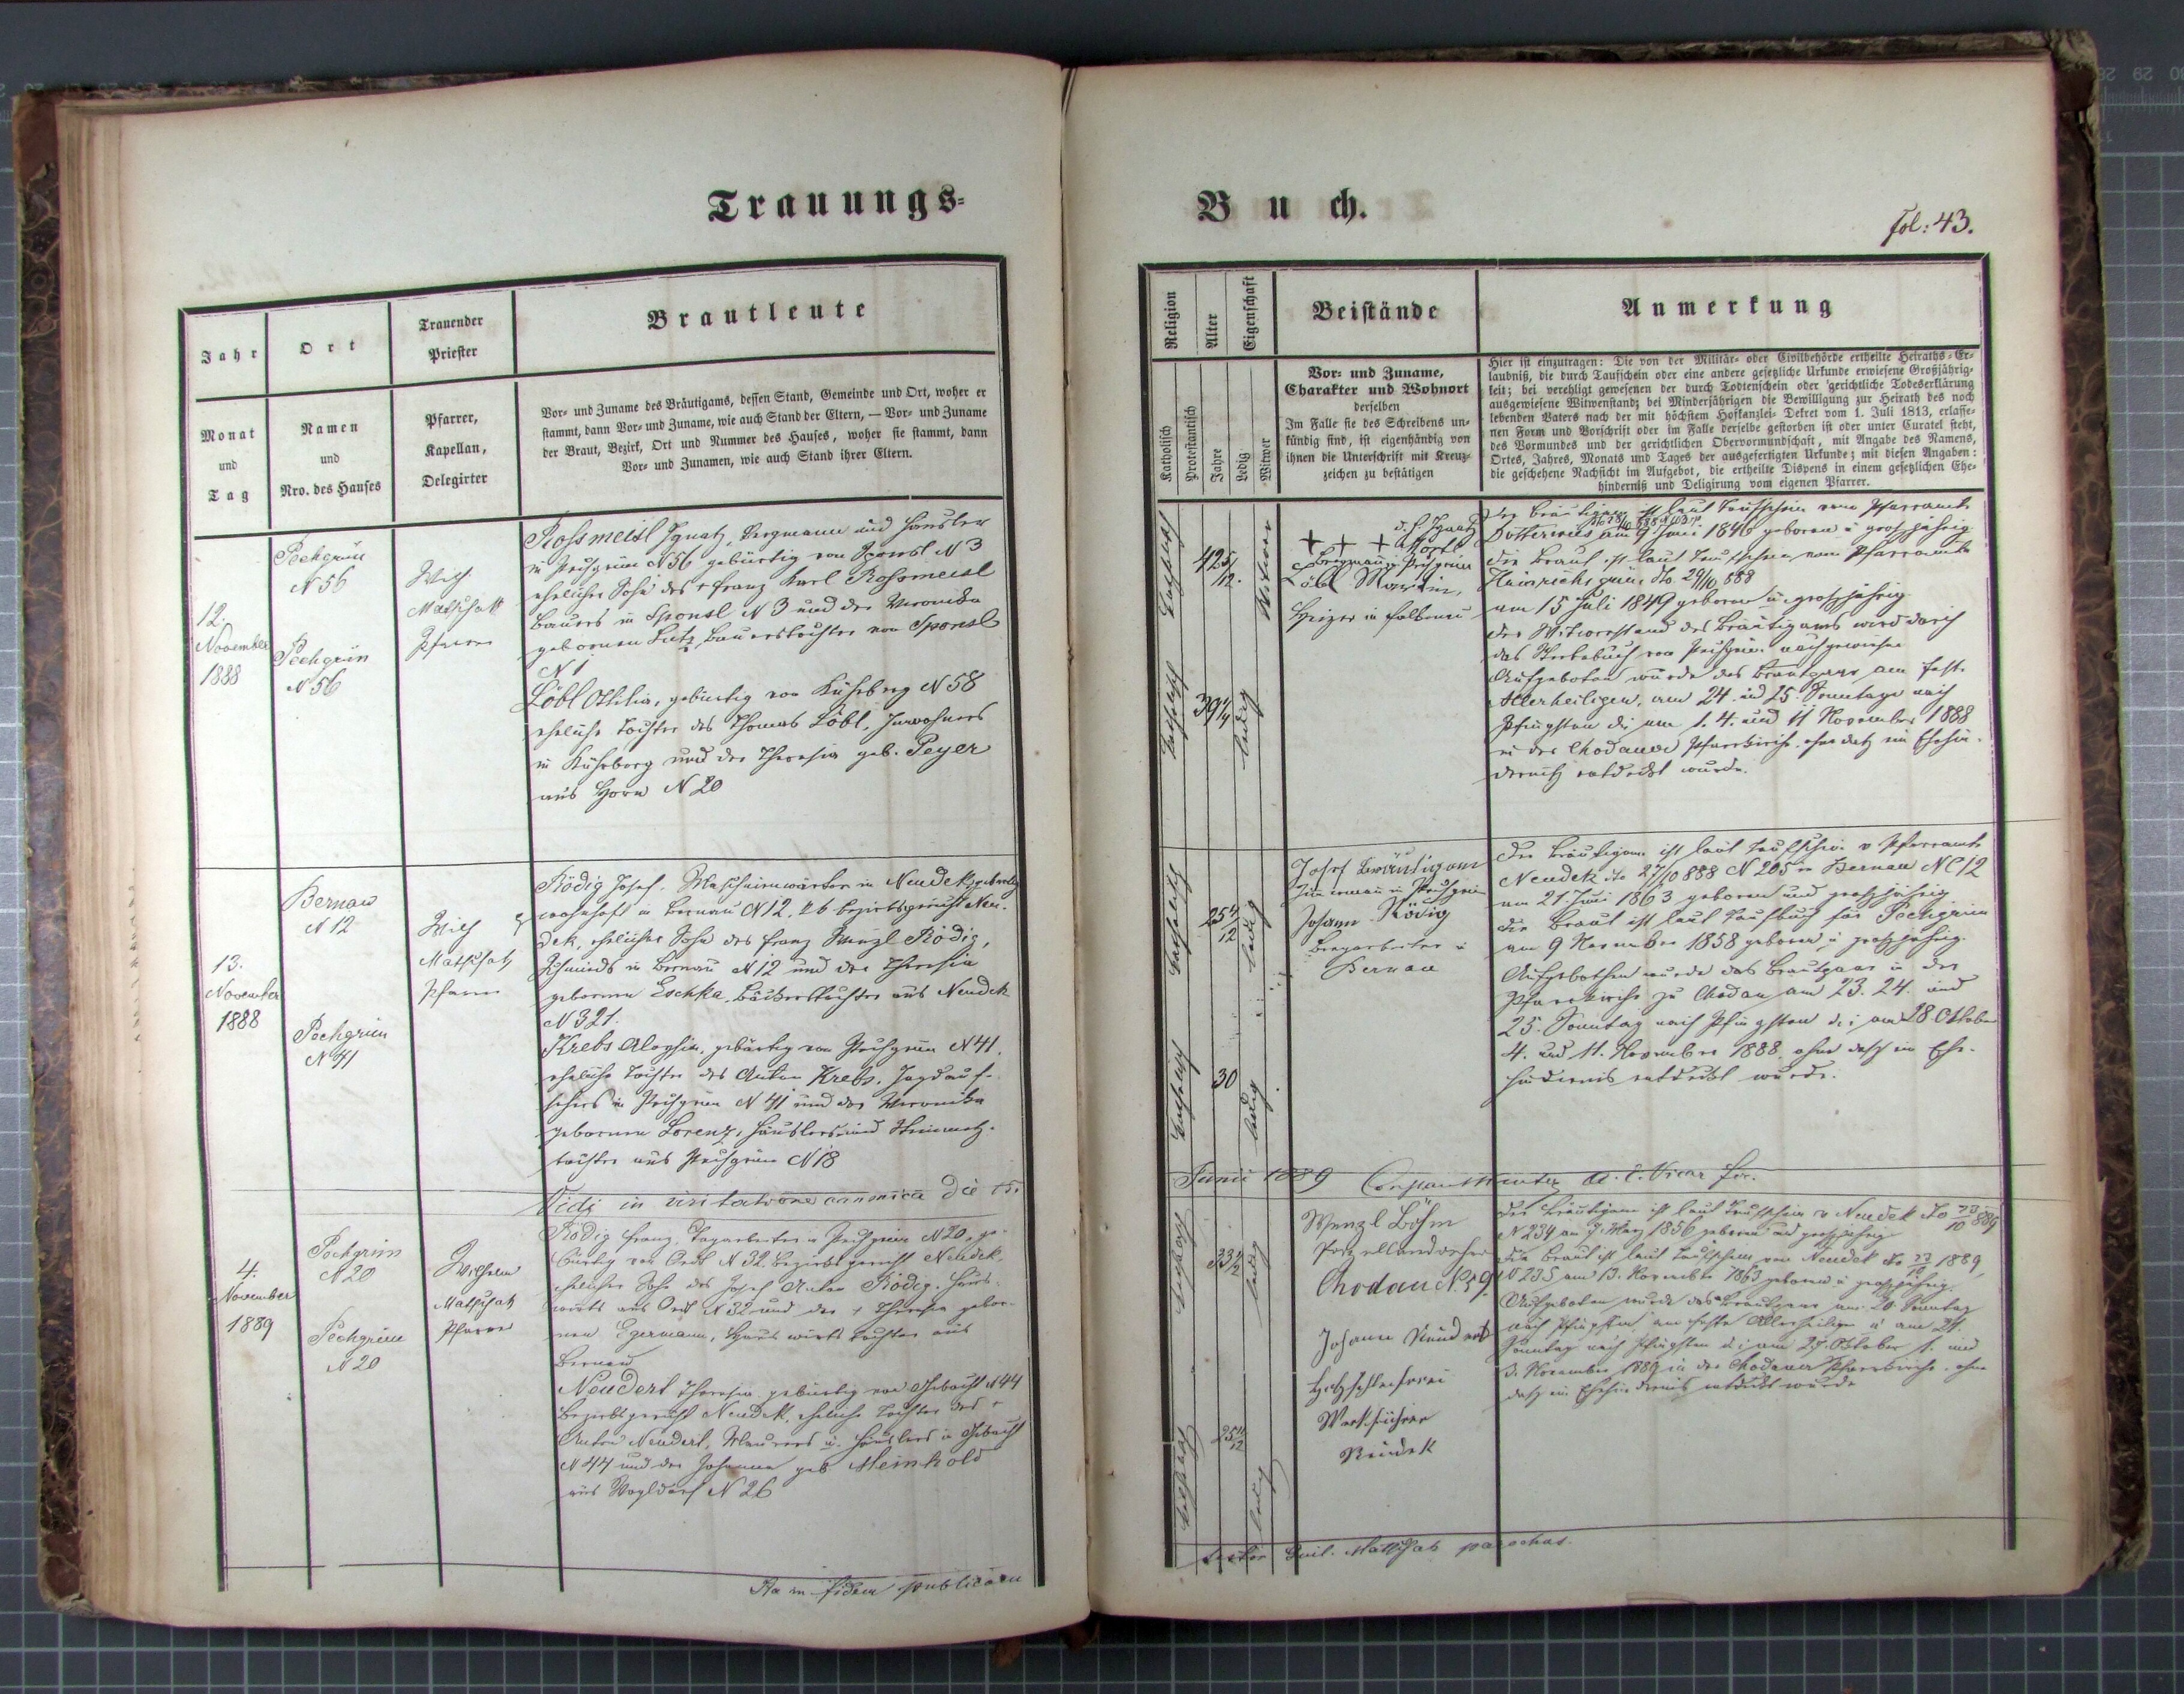 Trauungs=
Buch.
fol: 43.
Jahr
Ort
Trauender
Priester
Brautleute
Monat
und
Tag
Namen
und
Nro. des Hauses
Pfarrer,
Kapellan,
Delegirter
Vor= und Zuname des Bräutigams, dessen Stand, Gemeinde und Ort, woher er
stammt, dann Vor= und Zuname, wie auch Stand der Eltern, — Vor= und Zuname
der Braut, Bezirk, Ort und Nummer des Hauses, woher sie stammt, dann
Vor= und Zunamen, wie auch Stand ihrer Eltern.
Religion
Alter
Eigenschaft
Beistände
Anmerkung
Katholisch
Protestantisch
Jahre
Ledig
Witwer
Vor= und Zuname,
Charakter und Wohnort
derselben
Im Falle sie des Schreibens un=
kündig sind, ist eigenhändig von
ihnen die Unterschrift mit Kreuz=
zeichen zu bestätigen
Hier ist einzutragen: Die von der Militär= oder Civilbehörde ertheilte Heiraths=Er=
laubniß, die durch Taufschein oder eine andere gesetzliche Urkunde erwiesene Großjährig=
keit; bei verehligt gewesenen der durch Todtenschein oder gerichtliche Todeserklärung
ausgewiesene Witwenstand; bei Minderjährigen die Bewilligung zur Heirath des noch
lebenden Vaters nach der mit höchstem Hofkanzlei= Dekret vom 1. Juli 1813, erlasse=
nen Form und Vorschrift oder im Falle derselbe gestorben ist oder unter Curatel steht,
des Vormundes und der gerichtlichen Obervormundschaft, mit Angabe des Namens,
Ortes, Jahres, Monats und Tages der ausgefertigten Urkunde; mit diesen Angaben:
die geschehene Nachsicht im Aufgebot, die ertheilte Dispens in einem gesetzlichen Ehe=
hinderniß und Deligirung vom eigenen Pfarrer.
12.
November
1888
Pechgrün
N 56
Pechgrün
N 56
Wilh.
Matschatz
Pfarrer
Rossmeisl Ignatz, Bergmann und Häusler
in Pechgrün N 56 gebürtig von Sponsl N 3
ehelicher Sohn des + Franz Karl Rossmeisl
Bauers in Sponsl N 3 und der Veronika
gebornen Lutz Bauerstochter von Sponsl
N 1
Löbl Ottilia, gebürtig von Kühberg N 58
eheliche Tochter des Thomas Löbl, Inwohners
in Kühberg und der Theresia geb. Peyer
aus Horn N 20
katholisch
42 5/12
Witwer
katholisch
39 1/4
ledig
+ + +
Bergmann Pechgrün
Löbl
Heizer in Falkenau
Der Bräutigam ist laut Taufschein vom Pfarramte
am 9. Juni 1846 geboren u großjährig
die Braut ist laut Taufschein vom Pfarramte
Heinrichsgrün dto 29/10 888
am 15 Juli 1849 geboren u. großjährig
der Witwerstand des Bräutigams wird durch
das Sterbebuch von Pechgrün nachgewiesen
Aufgeboten wurde das Brautpaar am Feste
Allerheiligen, am 24 und 25. Sonntage nach
Pfingsten di am 1. 4. und 11 November 1888
in der Chodauer Pfarrkirche, ohne daß ein Ehehin=
derniß entdeckt wurde.
13.
November
1888
Bernau
N 12
Pechgrün
N 41
Wilh
Matschatz
Pfarrer
Rödig Josef, Maschinenwärter in Neudek, gebürtig
wohnhaft in Bernau N 12, kk Bezirksgericht Neu=
dek, ehelicher Sohn des Franz Wenzl Rödig,
Schmieds in Bernau N 12 und der Theresia
gebornen Eschka, Bäckerstochter aus Neudek
N 321.
Krebs Aloysia, gebürtig von Pechgrün N 41.
eheliche Tochter des Anton Krebs, Jagdauf=
sehers in Pechgrün N 41 und der Veronika
gebornen Lorenz, Häuslers und Steinmetz=
tochter aus Pechgrün N 18
katholisch
25 4/12
ledig
katholisch
30
ledig
Josef Bräutigam
Zimmermann in Pechgrün
Johann Rödig
Bergarbeiter in
Bernau
Der Bräutigam ist laut Taufschein v Pfarramte
Neudek dto 27/10 888 N 205 in Bernau NC 12
am 21 Juni 1863 geboren und großjährig
die Braut ist laut Taufbuch für Pechgrün
am 9 November 1858 geboren u großjährig.
Aufgebothen wurde das Brautpaar in der
Pfarrkirche zu Chodau am 23. 24. und
25. Sonntag nach Pfingsten di am 28. Oktober
4. und 11. November 1888, ohne daß ein Ehe=
hinderniß entdeckt wurde.
Vidi in visitatione canonica die 15.
Junii 1889
4.
November
1889
Pechgrün
N 20
Pechgrün
N 20
Wilhelm
Matschatz
Pfarrer
Rödig Franz, Tagarbeiter in Pechgrün N 20, ge=
bürtig von Oedt N 32. Bezirksgericht Neudek,
ehelicher Sohn des Josef Anton Rödig, Haus=
wirts aus Oedt N 32 und der + Theresia gebor=
nen Egermann, Hauswirtstochter aus
Bernau
Neudert Theresia gebürtig von N 44
Bezirksgericht Neudek, eheliche Tochter des +
Anton Neudert, Maurers u. Häuslers in
N 44 und der Johanna geb Meinhold
aus Vogldorf N 26
katholisch
33 1/2
ledig
katholisch
25 11/12
ledig
Wenzl Böhm
Porzellandreher
Chodau N. 59.
Johann Neudert
Holzschleiferei
Werkführer
Neudek
Der Bräutigam ist laut Taufschein v Neudek dto 889
N 234 am 7. März 1856 geboren und großjährig
die Braut ist laut Taufschein von Neudek dto 1889,
N 235 am 13. November 1863 geboren u großjährig.
Aufgeboten wurde das Brautpaar am 20. Sonntag
nach Pfingsten am Feste Allerheiligen u am 21.
Sonntag nach Pfingsten di am 27. Oktober 1. und
3. November 1889 in der Chodauer Pfarrkirche, ohne
daß ein Ehehinderniß entdeckt wurde
Ita in fidem publicam
testor Guil. Matschatz parochus.